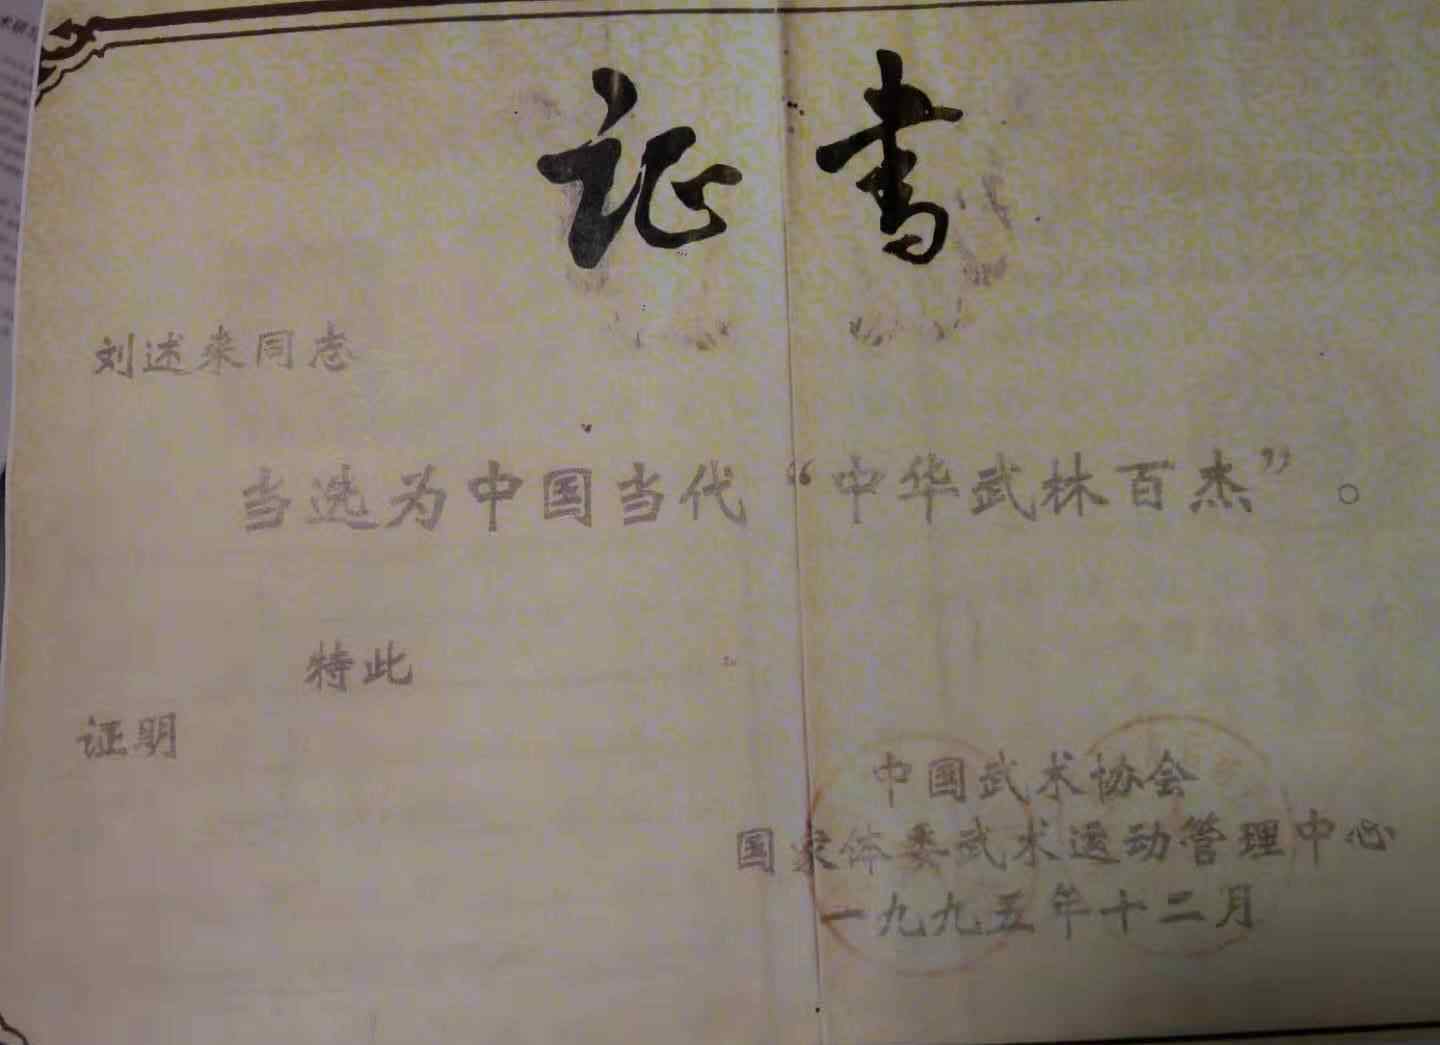 证书
刘述来同志
当选为中国当代“中华武林百杰”。
特此
证明
中国武术协会
国家体委武术运动管理中心
一九九五年十二月